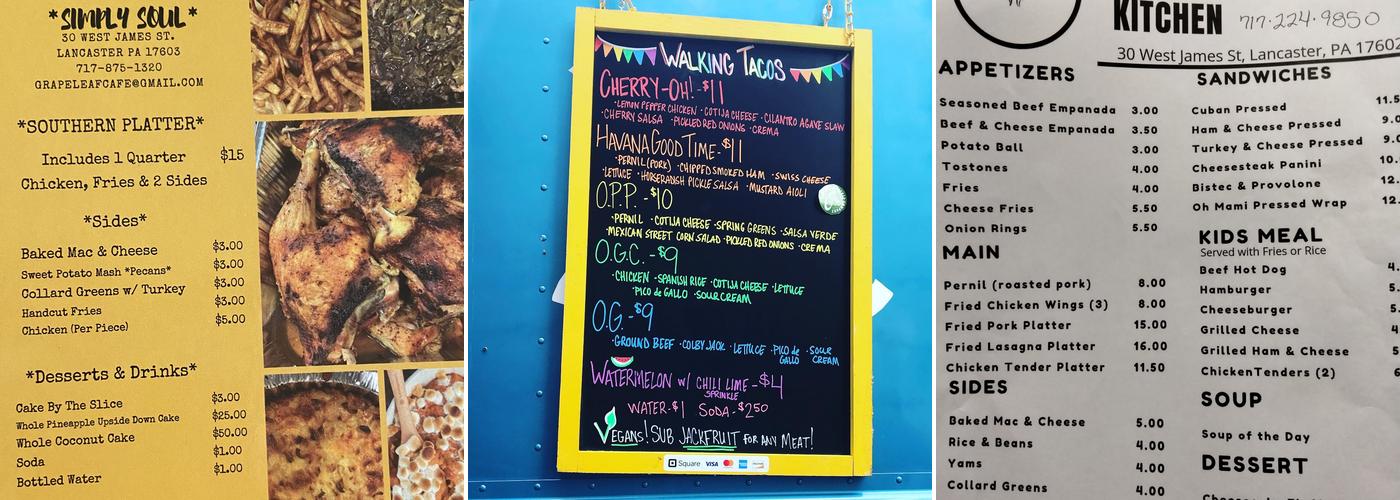 *SIMPLY SOUL*
30 WEST JAMES ST.
LANCASTER PA 17603
717-875-1320
GRAPELEAFCAFE@GMAIL.COM
*SOUTHERN PLATTER*
Includes 1 Quarter $15
Chicken, Fries & 2 Sides
*Sides*
Baked Mac & Cheese $3.00
Sweet Potato Mash *Pecans* $3.00
Collard Greens w/ Turkey $3.00
Handcut Fries $3.00
Chicken (Per Piece) $5.00
*Desserts & Drinks*
Cake By The Slice $3.00
Whole Pineapple Upside Down Cake $25.00
Whole Coconut Cake $50.00
Soda $1.00
Bottled Water $1.00
WALKING TACOS
CHERRY-OH! -$11
·LEMON PEPPER CHICKEN ·COTIJA CHEESE ·CILANTRO AGAVE SLAW
·CHERRY SALSA ·PICKLED RED ONIONS ·CREMA
HAVANA GOOD TIME-$11
·PERNIL (PORK) ·CHIPPED SMOKED HAM ·SWISS CHEESE
·LETTUCE ·HORSERADISH PICKLE SALSA ·MUSTARD AIOLI
O.P.P. -$10
·PERNIL ·COTIJA CHEESE ·SPRING GREENS ·SALSA VERDE
·MEXICAN STREET CORN SALAD ·PICKLED RED ONIONS ·CREMA
O.G.C. -$9
·CHICKEN ·SPANISH RICE ·COTIJA CHEESE ·LETTUCE
·PICO de GALLO ·SOUR CREAM
O.G. -$9
·GROUND BEEF ·COLBY JACK ·LETTUCE ·PICO de GALLO ·SOUR CREAM
WATERMELON w/ CHILI LIME SPRINKLE -$4
WATER-$1 SODA-$2.50
VEGANS! SUB JACKFRUIT FOR ANY MEAT!
Square VISA
KITCHEN 717·224·9850
30 West James St, Lancaster, PA 17602
APPETIZERS
Seasoned Beef Empanada 3.00
Beef & Cheese Empanada 3.50
Potato Ball 3.00
Tostones 4.00
Fries 4.00
Cheese Fries 5.50
Onion Rings 5.50
MAIN
Pernil (roasted pork) 8.00
Fried Chicken Wings (3) 8.00
Fried Pork Platter 15.00
Fried Lasagna Platter 16.00
Chicken Tender Platter 11.50
SIDES
Baked Mac & Cheese 5.00
Rice & Beans 4.00
Yams 4.00
Collard Greens 4.00
SANDWICHES
Cuban Pressed 11.5
Ham & Cheese Pressed 9.0
Turkey & Cheese Pressed 9.0
Cheesesteak Panini 10.
Bistec & Provolone 12.
Oh Mami Pressed Wrap 12.
KIDS MEAL
Served with Fries or Rice
Beef Hot Dog 4.
Hamburger 5.
Cheeseburger 5.
Grilled Cheese 4
Grilled Ham & Cheese 5
ChickenTenders (2) 6
SOUP
Soup of the Day
DESSERT